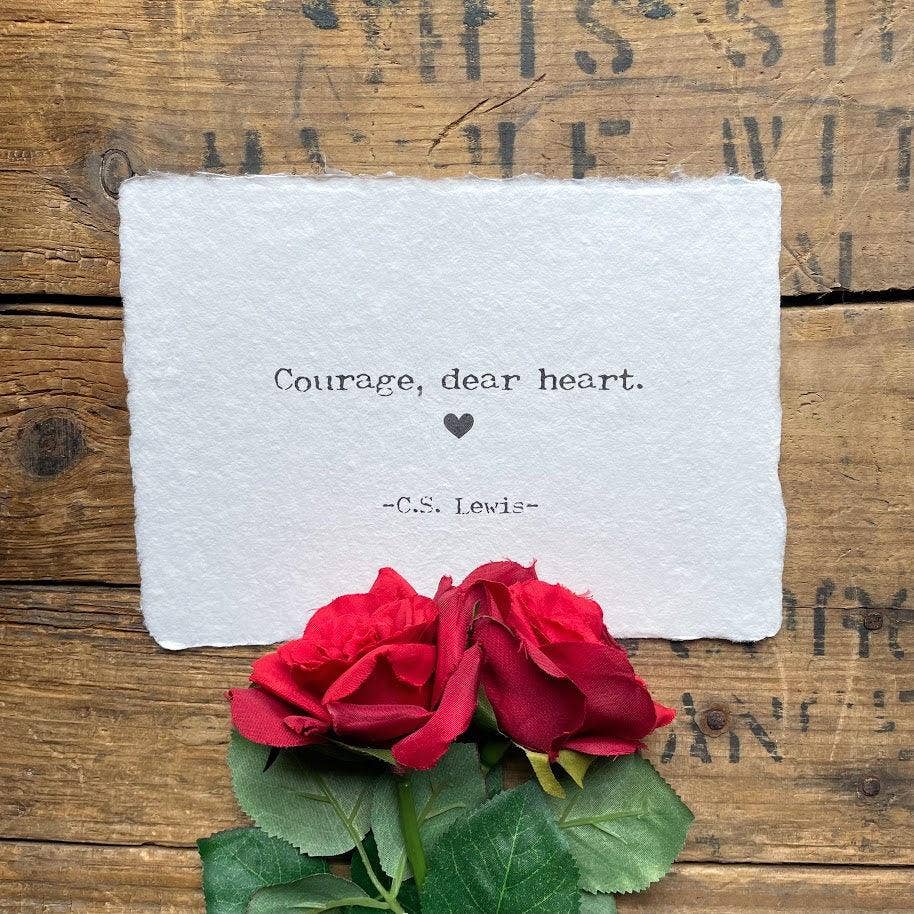 Courage, dear heart.
-C.S. Lewis-